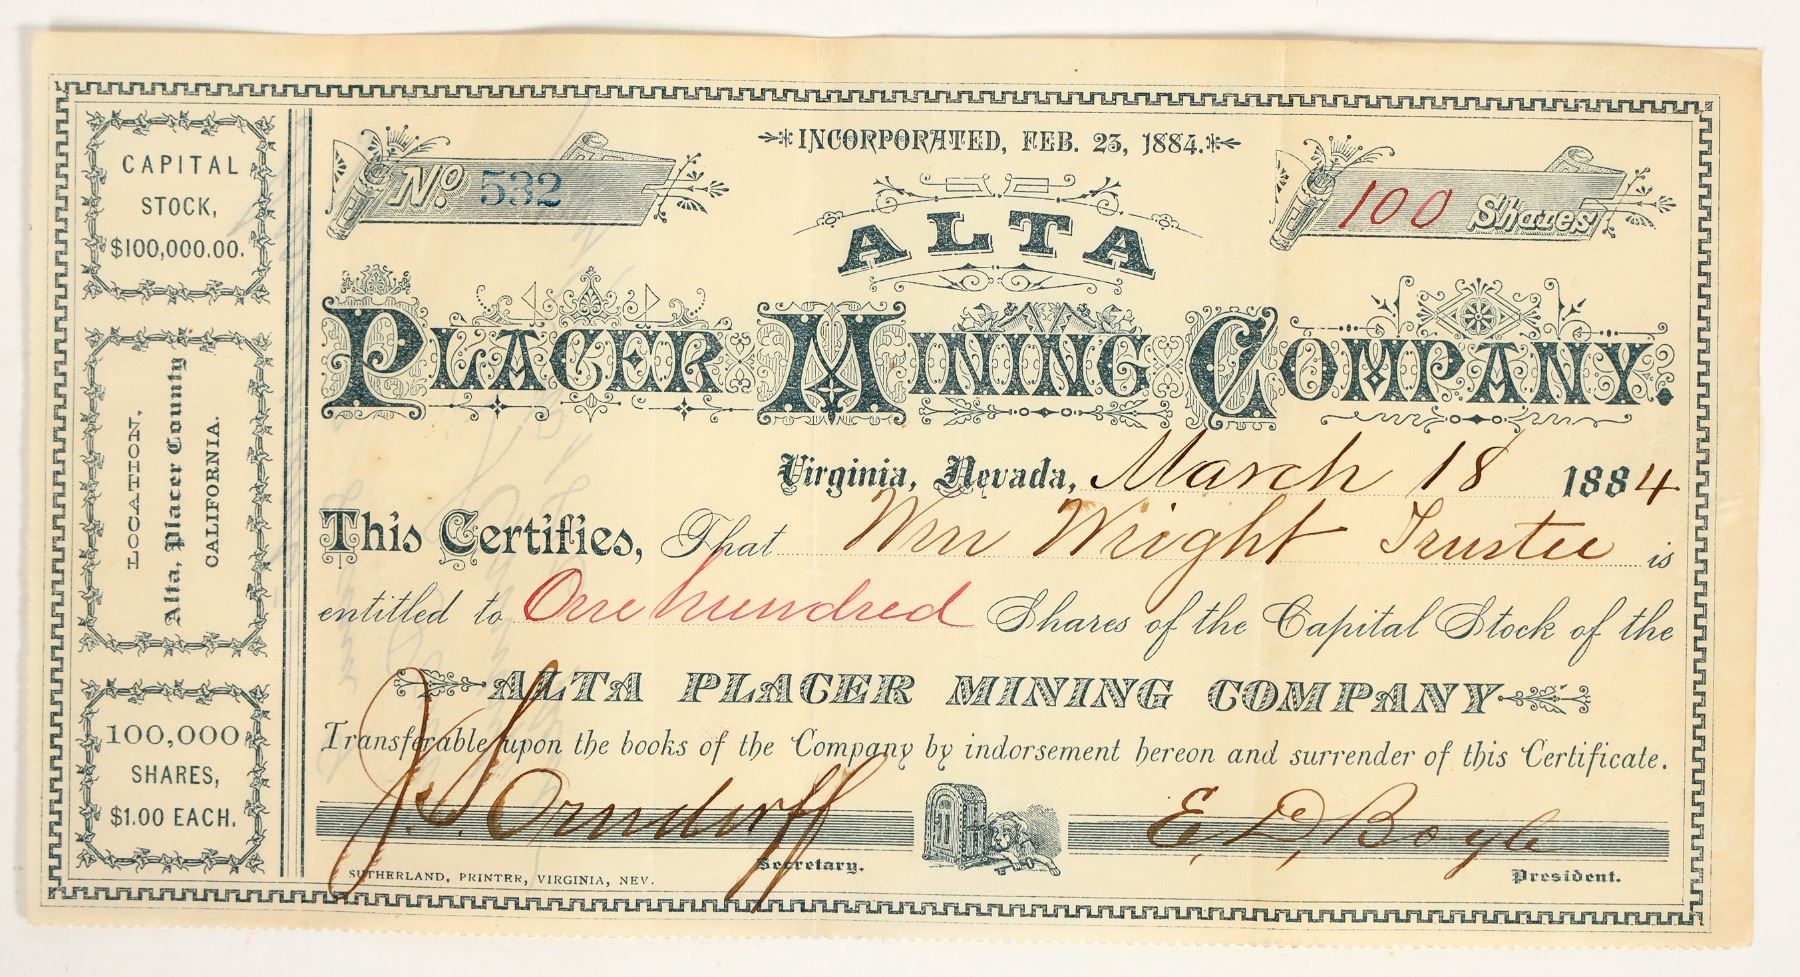 INCORPORATED, FEB. 23, 1884.
No. 532
100 Shares
ALTA
PLACER MINING COMPANY.
Virginia, Nevada, March 18 1884
This Certifies, That Wm Wright Trustee is
entitled to One hundred Shares of the Capital Stock of the
ALTA PLACER MINING COMPANY
Transferable upon the books of the Company by indorsement hereon and surrender of this Certificate.
J. S. Orndorff
E. D. Boyle
Secretary.
President.
SUTHERLAND, PRINTER, VIRGINIA, NEV.
CAPITAL
STOCK,
$100,000.00.
LOCATION,
Alta, Placer County
CALIFORNIA.
100,000
SHARES,
$1.00 EACH.